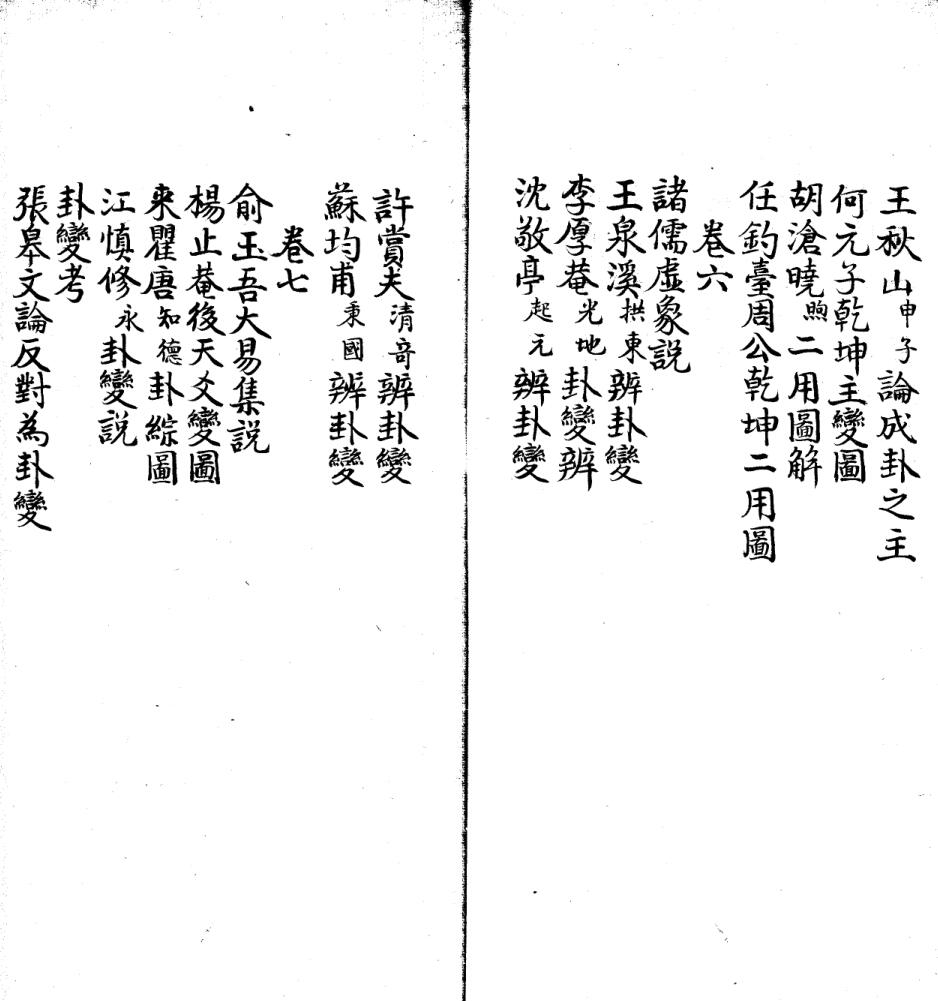 王秋山申子論成卦之主
何元子乾坤主變圖
胡滄曉煦二用圖解
任釣臺周公乾坤二用圖
卷六
諸儒虛象説
王泉溪拱東辨卦變
李厚菴光地卦變辨
沈敬亭起元辨卦變
許賞夫清奇辨卦變
蘇均甫秉國辨卦變
卷七
俞玉吾大易集説
楊止菴後天爻變圖
來瞿唐知德卦綜圖
江慎修永卦變説
卦變考
張皋文論反對為卦變